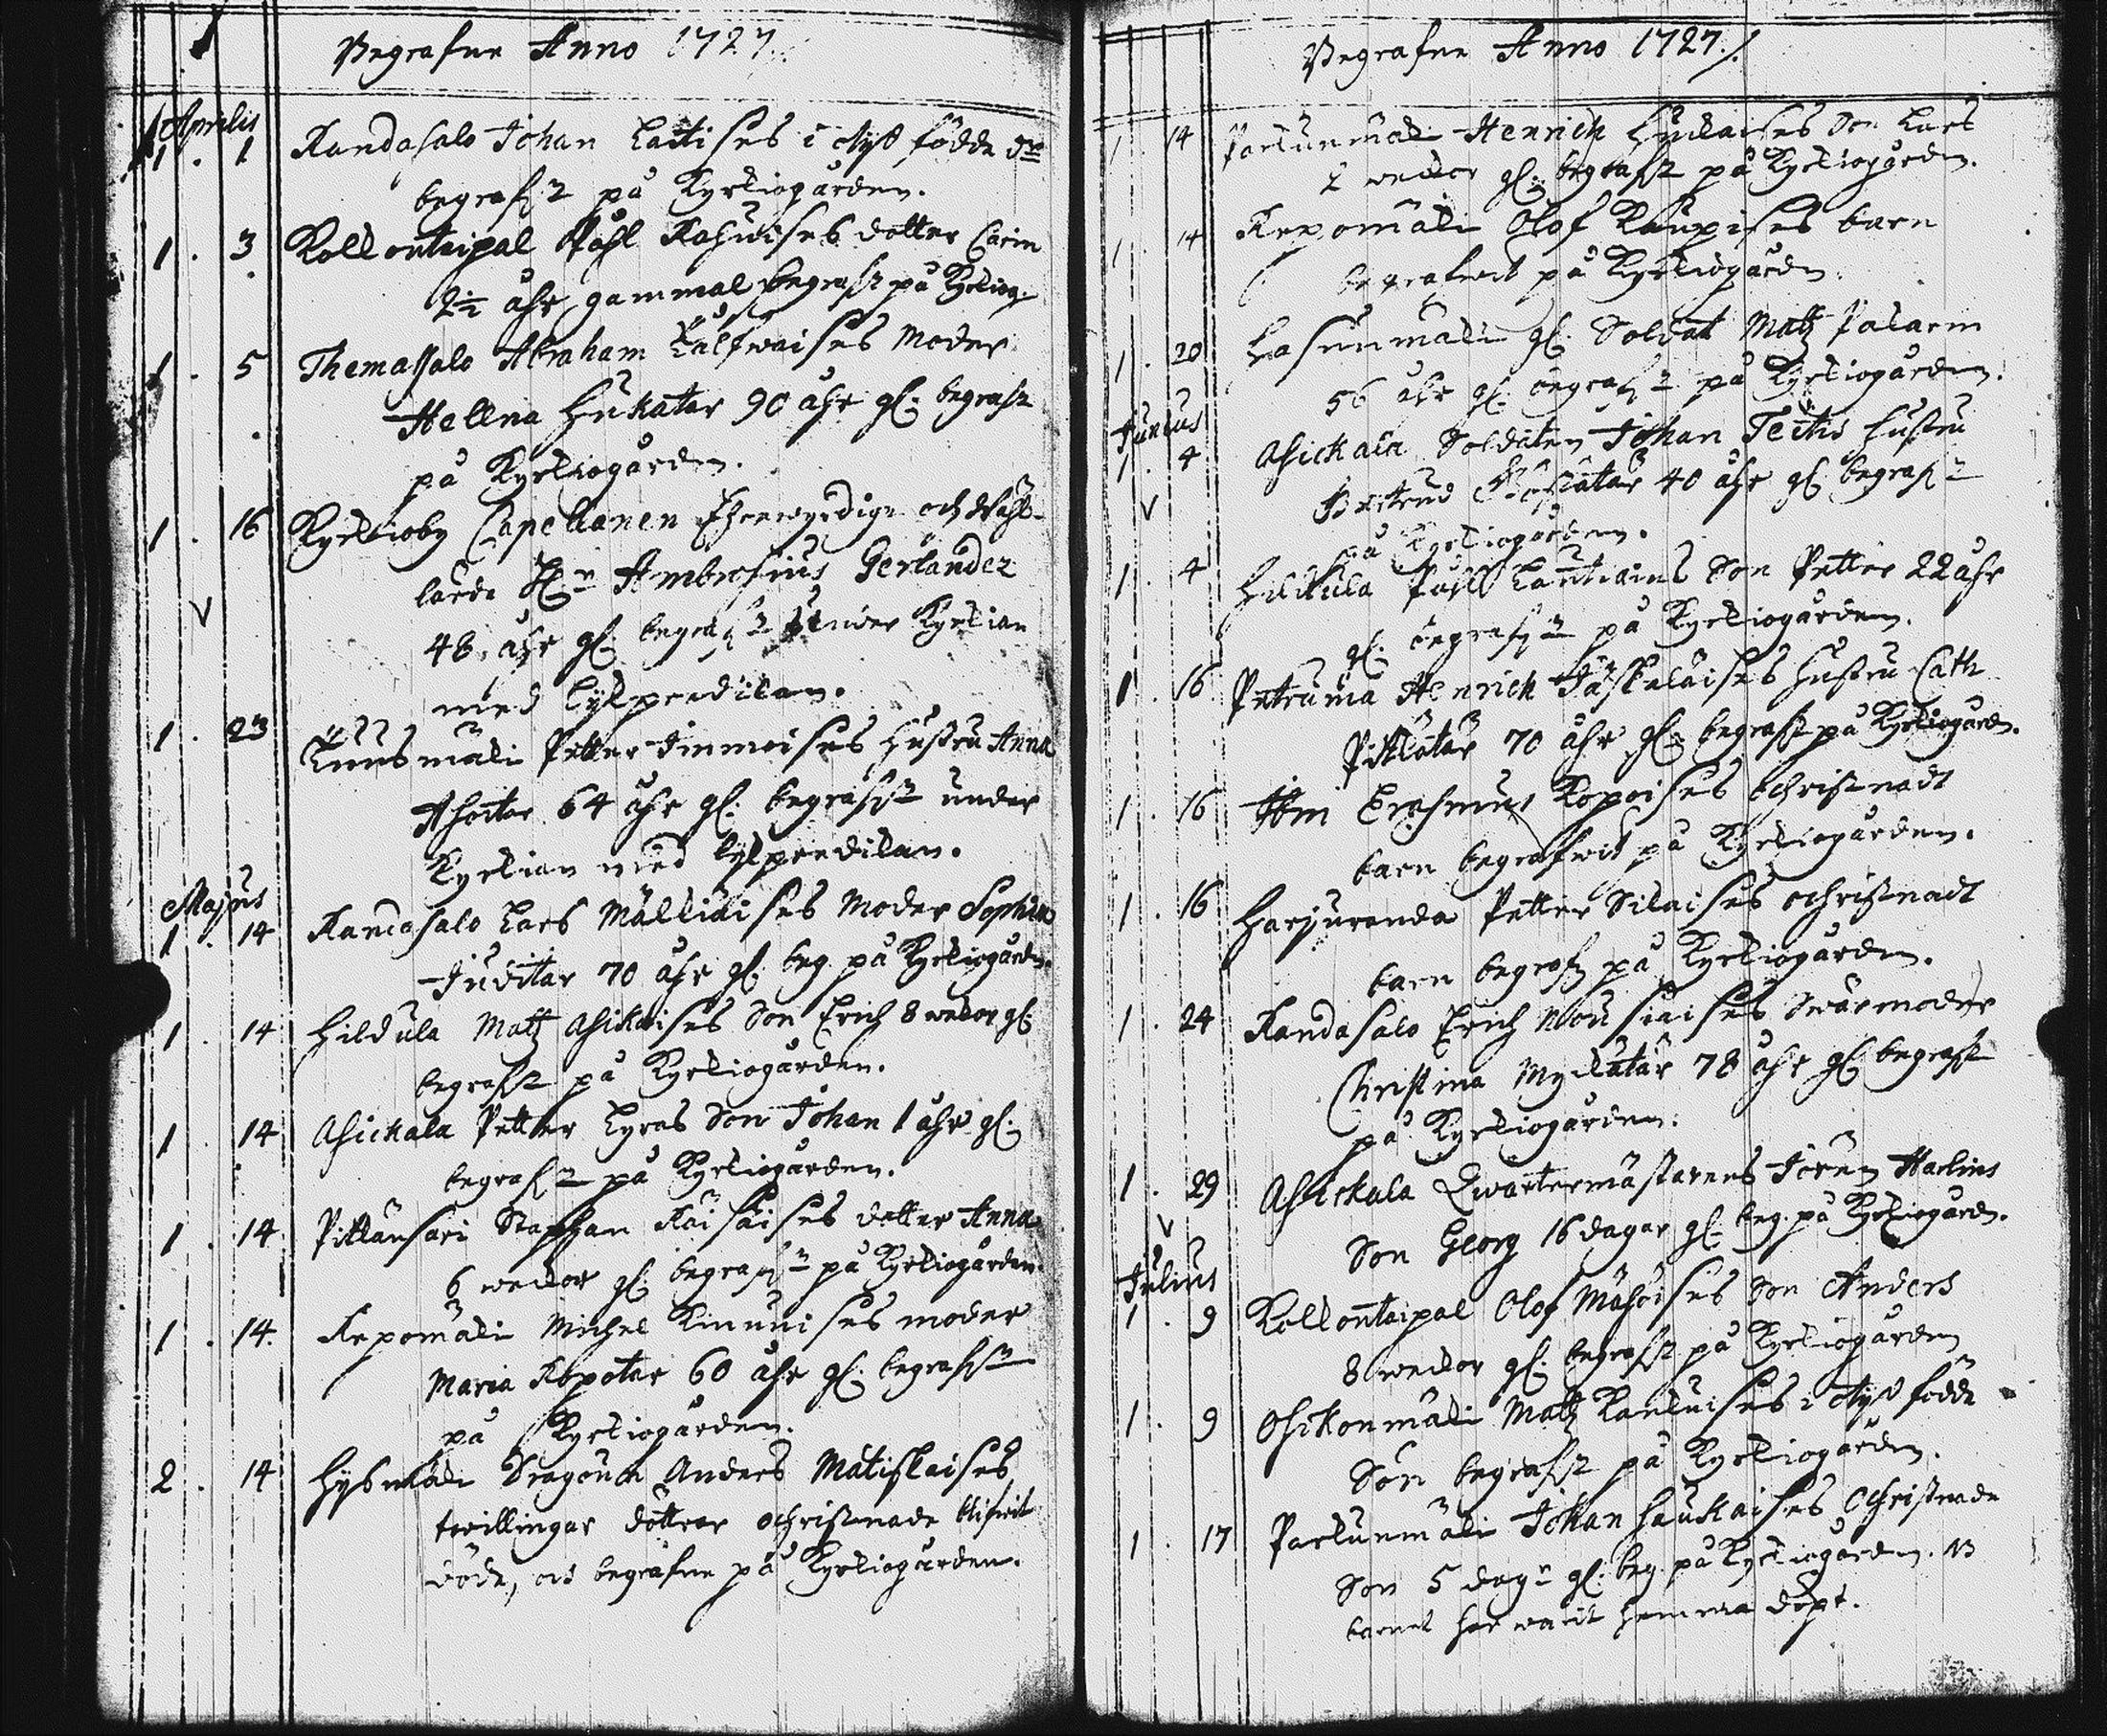 Begrafne Anno 1727.
Aprilis
1 . 1 Randasalo Johan Lattises i otyd födde
begrafz på Kyrkiogården.
1 . 3 Kollontaipal Påhl Rahuises dotter Carin
2½ åhr gammal begrafz på Kyrkiog.
1 . 5 Themassalo Abraham Kalfwaises Moder
Hellna Hukatar 90 åhr gl. begrafz
på Kyrkiogården.
1 . 16 Kyrkioby Capellanen Ehrewyrdige och Wähl-
lärde Hr Ambrosius Gerlander
48 åhr gl. begrafz under Kyrkian
med lijkpredikan.
1 . 23 mäki Petter Immoises hustru Anna
Ahoitar 64 åhr gl. begrafz under
Kyrkian med lijkpredikan.
Majus
1 . 14 Randasalo Lars Mälkiäises Moder Sophia
Juditar 70 åhr gl. beg. på Kyrkiogården.
1 . 14 Hildula Matz Asikaises Son Erich 8 wekor gl.
begrafz på Kyrkiogården.
1 . 14 Asickala Petter Lyras Son Johan 1 åhr gl.
begrafz på Kyrkiogården.
1 . 14 Pitkänsari Staphan Räisäises dotter Anna
6 wekor gl. begrafz på Kyrkiogården.
1 . 14. Repomäki Michel Kinnuises moder
Maria Kopotar 60 åhr gl. begrafz
på Kyrkiogården.
2 . 14 Hysmäki Dragoun Anders Matiskaises
twillingar döttrar ochristnade blifwit
döde, och begrafne på Kyrkiogården.
Begrafne Anno 1727./.
1 . 14 Parkunmäki Henrich Hyvläises Son Lars
2 wekor gl. begrafz på Kyrkiogården.
1 . 14 Repomäki Olof Kaupises barn
begrafwit på Kyrkiogården.
1 . 20 Hasunmäki gl. Soldat Matz Palarin
56 åhr gl. begrafz på Kyrkiogården.
Junius
1 . 4 Asickala Soldaten Johan Teitis hustru
40 åhr gl. begrafz
på Kyrkiogården.
1 . 4 Hildula Påhl Lautiains Son Petter 22 åhr
gl. begrafz på Kyrkiogården.
1 . 16 Petruma Henrich Jäskeläises hustru Cath
Pitkätär 70 åhr gl. begrafz på Kyrkiogården.
1 . 16 Ihmi Erasmus Kopoises ochristnadt
barn begrafwit på Kyrkiogården.
1 . 16 Harjuranda Petter Silaises ochristnadt
barn begrafz på Kyrkiogården.
1 . 24 Randasalo Erich Nousiaises Swärmoder
Christina 78 åhr gl. begrafz
på Kyrkiogården.
1 . 29 Asickala Qwartermästarens Jören Harlins
Son Georg 16 dagar gl. beg. på Kyrkiogården.
Julius
1 . 9 Kollontaipal Olof Mähöises Son Anders
8 wekor gl. begrafz på Kyrkiogården
1 . 9 Osikonmäki Matz Kankuises i otyd födde
Son begrafz på Kyrkiogården.
1 . 17 Parkunmäki Johan Haukaises Ochristnade
Son 5 dagr gl. beg. på Kyrkiogården. NB
barnet har warit hemma döpt.